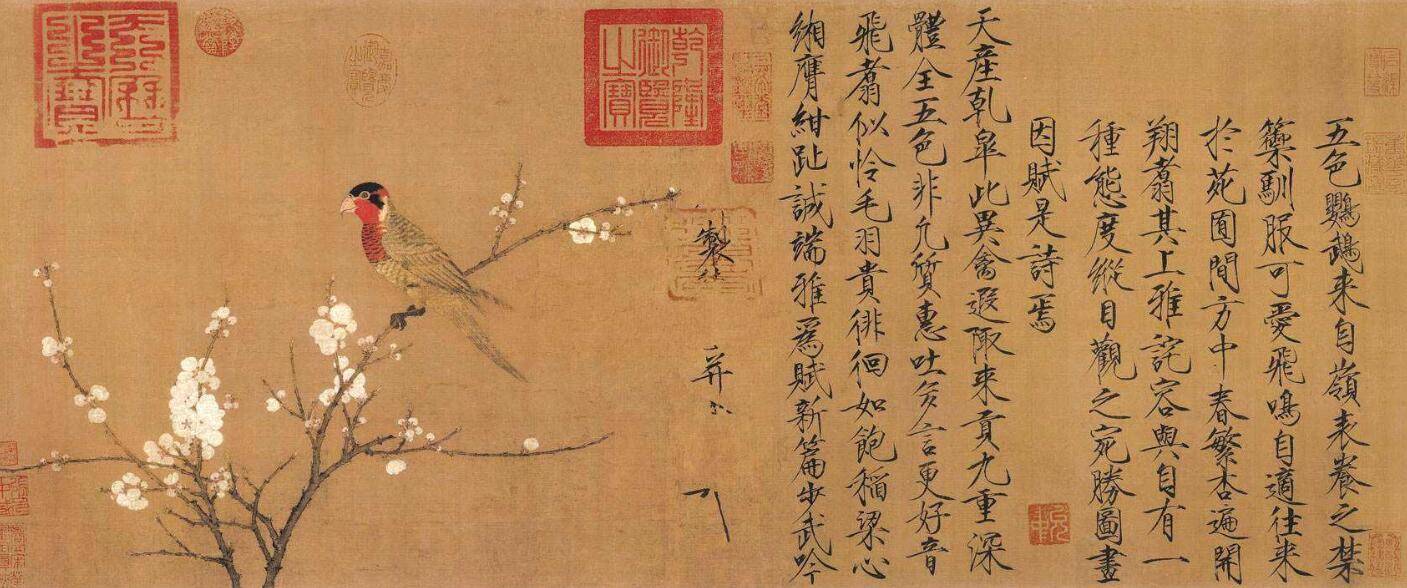 五色鸚鵡来自嶺表養之禁
籞馴服可愛飛鳴自適往来
於苑囿間方中春繁杏遍開
翔翥其上雅詫容與自有一
種態度縱目觀之宛勝圖畫
因賦是詩焉
天産乾皋此異禽遐陬来貢九重深
體全五色非凡質惠吐多言更好音
飛翥似憐毛羽貴徘徊如飽稻粱心
緗膺紺趾誠端雅爲賦新篇步武吟
製
并
乾隆御覽之寶
嘉慶御覽之寶
天曆之寶